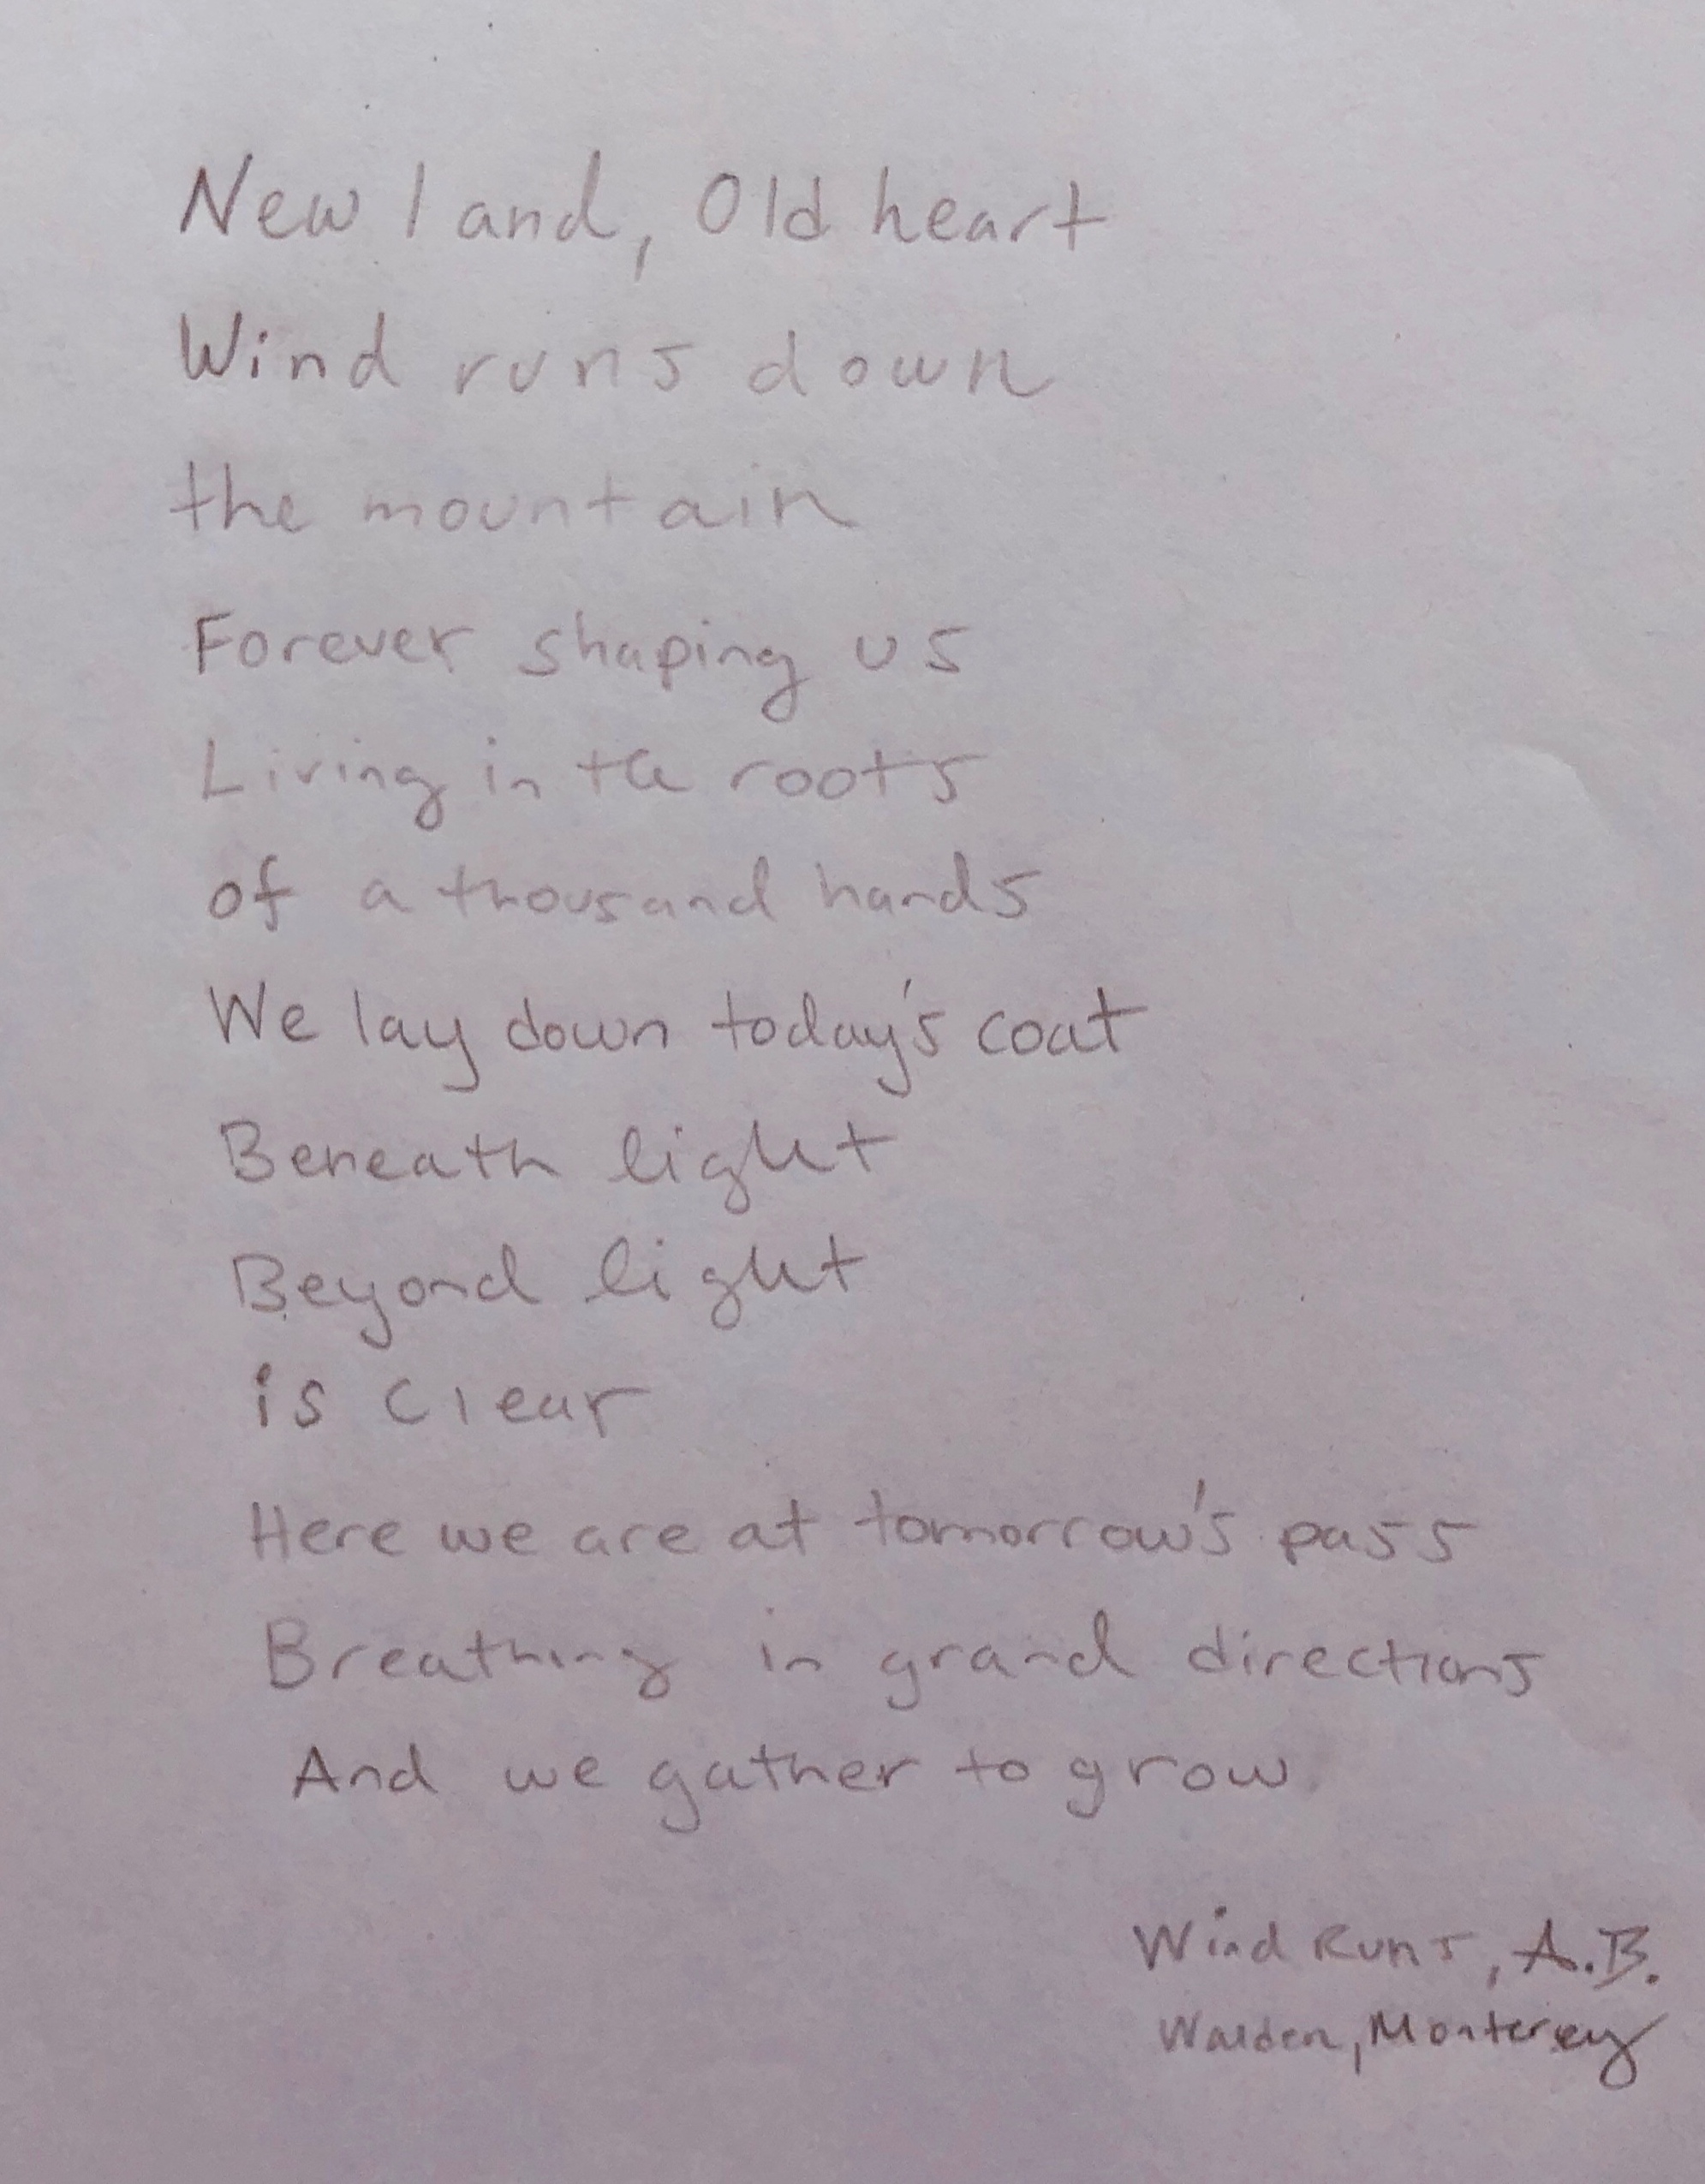 New land, Old heart
Wind runs down
the mountain
Forever shaping us
Living in the roots
of a thousand hands
We lay down today's coat
Beneath light
Beyond light
is clear
Here we are at tomorrow's pass
Breathing in grand directions
And we gather to grow.
Wind Runs, A.B.
Walden, Monterey